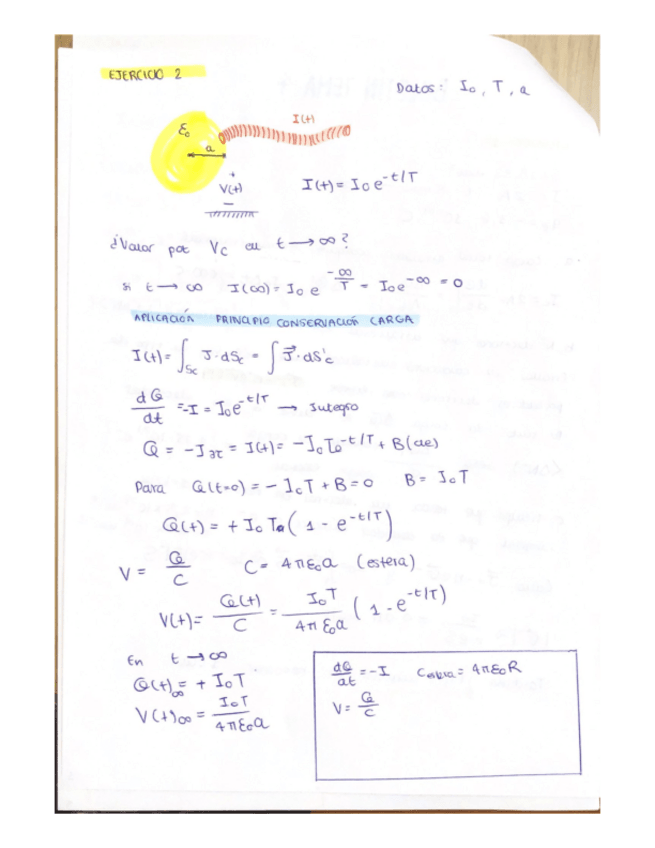 EJERCICIO 2
Datos: I₀, T, a
I(t)
ε₀
a
+
V(t)
−
I(t) = I₀ e^-t/T
¿Valor pot Vc en t → ∞?
Si t → ∞ I(∞) = I₀ e^-∞/T = I₀e^-∞ = 0
APLICACIÓN PRINCIPIO CONSERVACIÓN CARGA
I(t) = ∫Sc J·dSc = ∫ J⃗·dS'c
dQ/dt = -I = I₀e^-t/T → Integro
= I(t) = + B(cte)
Para Q(t=0) = - I₀T + B = 0 B = I₀T
Q(t) = + I₀ T (1 - e^-t/T)
V = Q/C C = 4πε₀a (esfera)
V(t) = Q(t)/C = I₀T/4πε₀a (1 - e^-t/T)
En t → ∞
Q(t)∞ = + I₀T
V(t)∞ = I₀T/4πε₀a
dQ/dt = -I Cesfera = 4πε₀R
V = Q/C